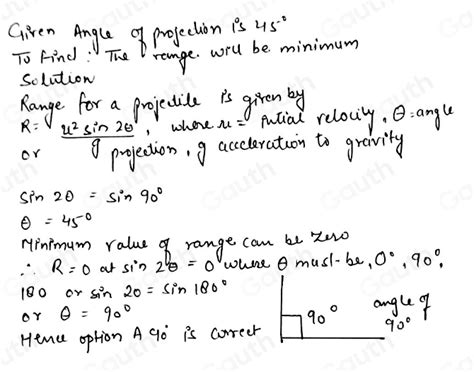 Given Angle of projection is 45°
To Find : The range will be minimum
Solution
Range for a projectile is given by
R = u² sin 2θ / g , where u = initial velocity, θ = angle
or projection, g acceleration to gravity
sin 2θ = sin 90°
θ = 45°
Minimum value of range can be zero
∴ R = 0 at sin 2θ = 0 where θ must-be, 0°, 90°,
180 or sin 2θ = sin 180°
or θ = 90°
Hence option A 90° is correct
90°
angle of
90°